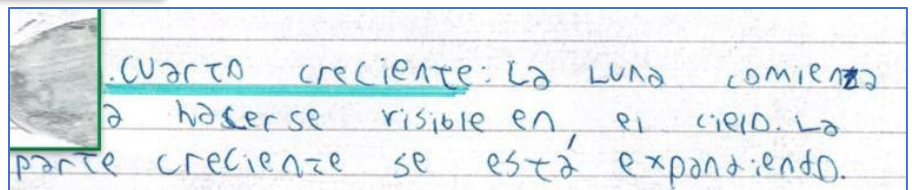 .Cuarto creciente: La Luna comienza
a hacerse visible en el cielo. La
parte creciente se está expandiendo.